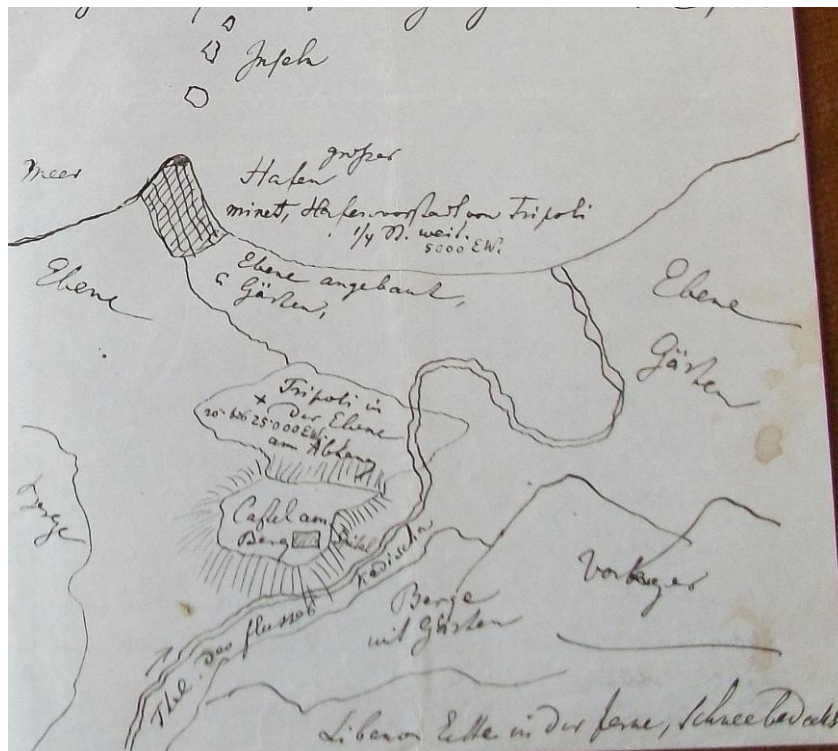 Inseln
Meer
großer
Hafen
minet, Hafenvorstadt von Tripoli
1/4 St. weit.
5000 EW.
Ebene
Ebene angebaut,
Gärten,
Ebene
Gärten
Tripoli in
der Ebene
20 bis 25000 EW.
am Abhang
Castel am
Berg
Berge
Kadischa
Thal des flusses
Berge
mit Gärten
Vorberge
Libanon Kette in der ferne, schneebedeckt